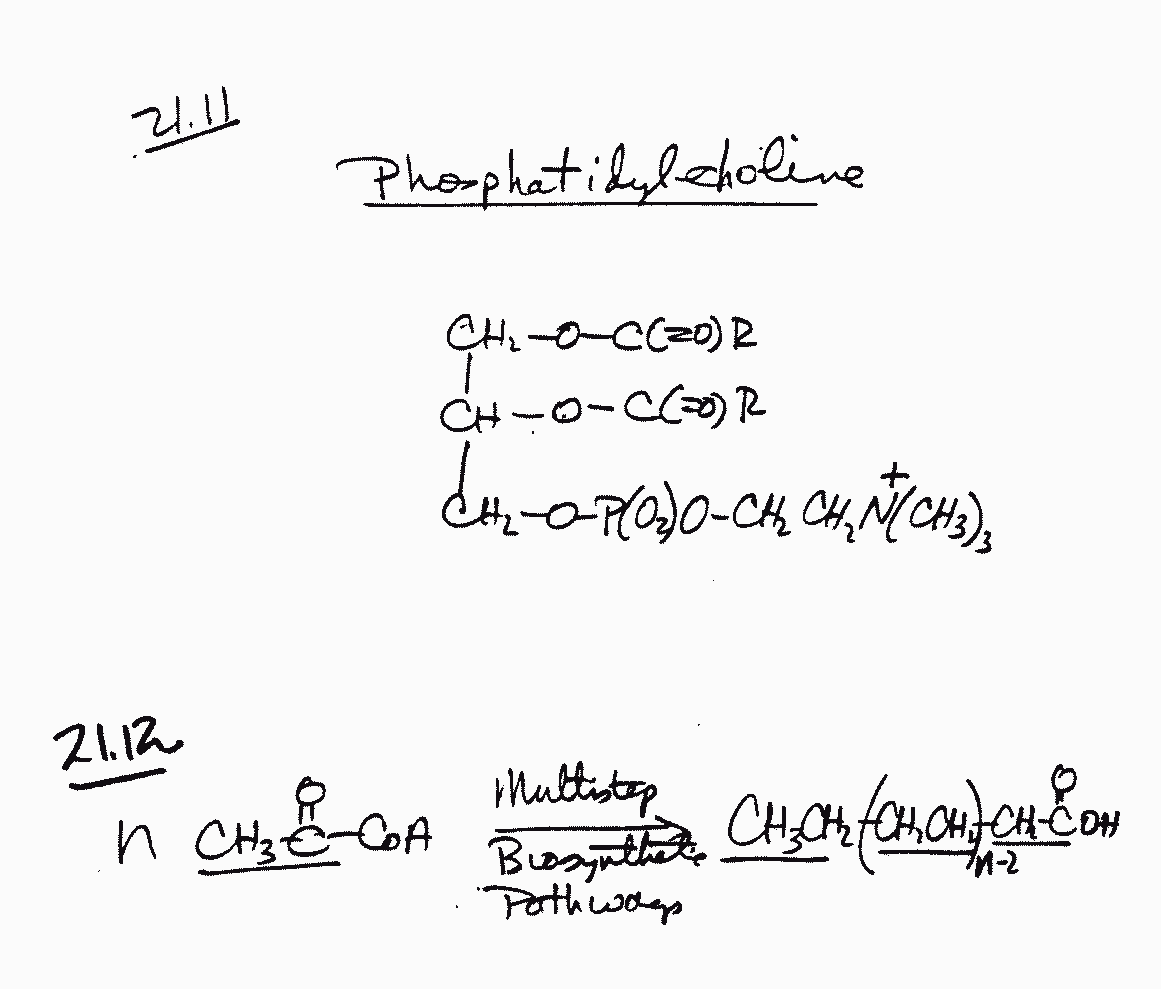 21.11
Phosphatidylcholine
CH₂-O-C(=O)R
CH-O-C(=O)R
CH₂-O-P(O₂)O-CH₂CH₂N⁺(CH₃)₃
21.12
n CH₃-C(=O)-CoA Multistep Biosynthetic Pathways → CH₃CH₂-(CH₂CH₂)n-2-CH₂-C(=O)OH